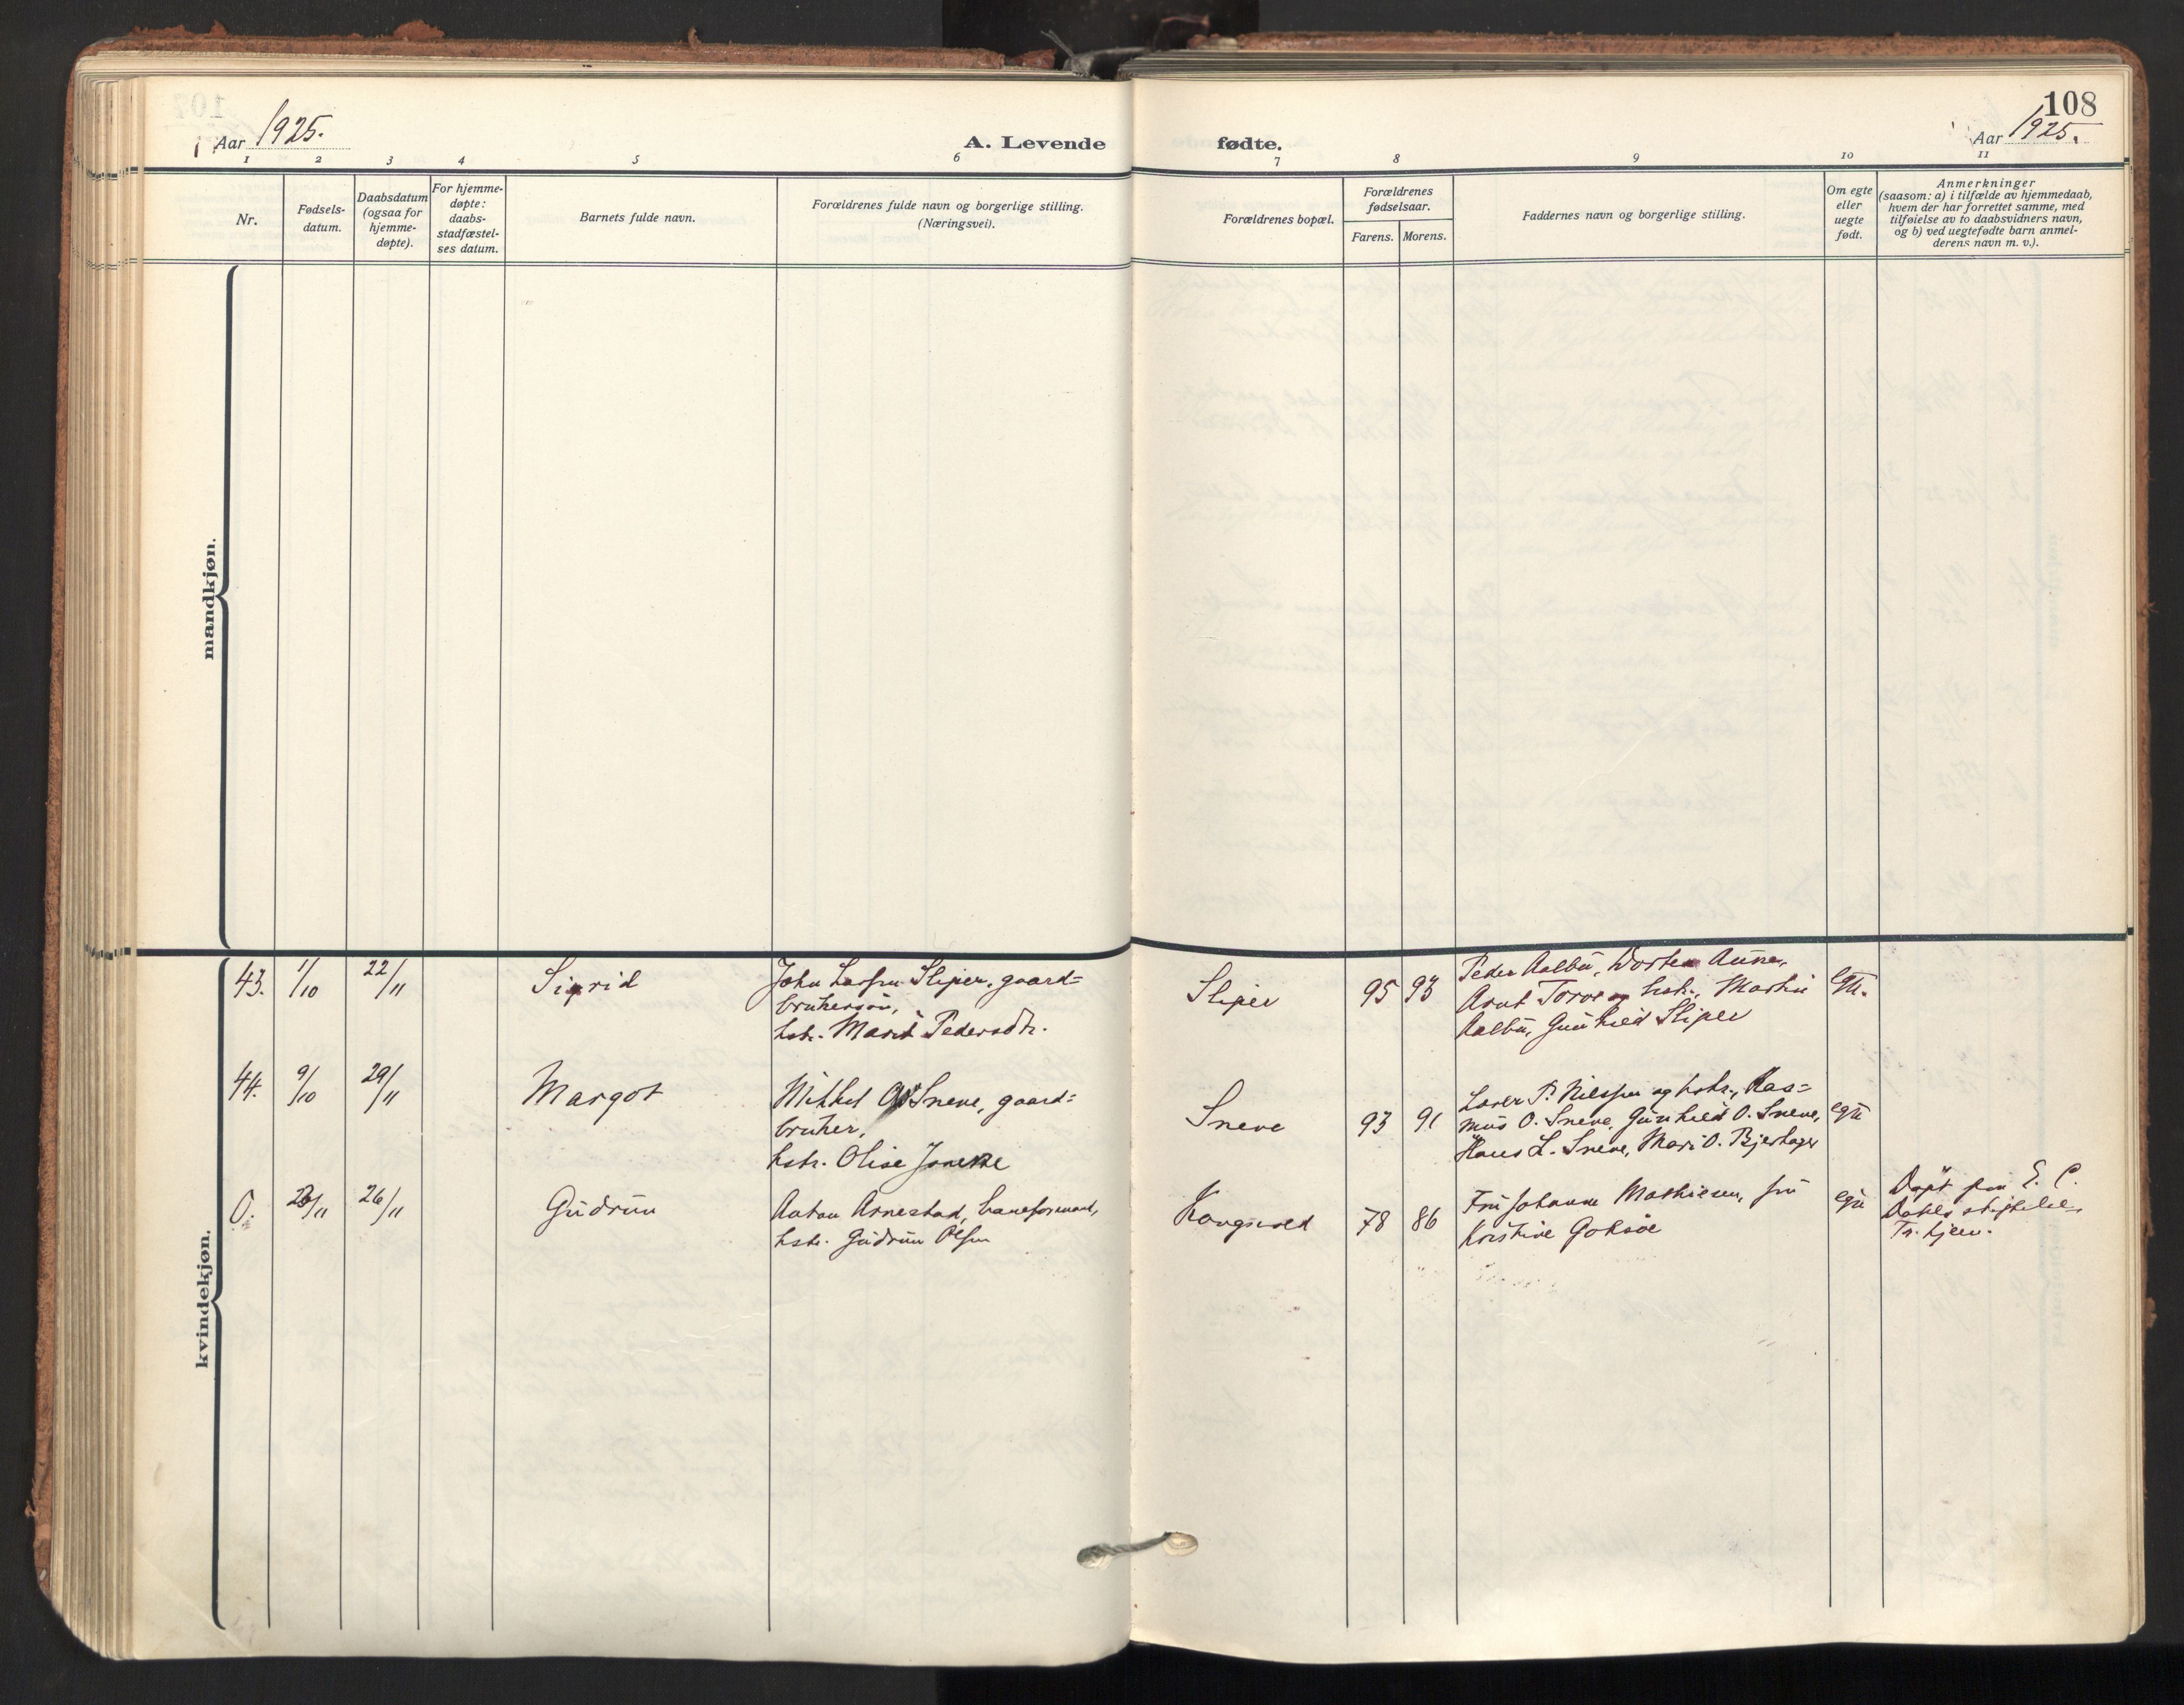 Aar 1925.
A. Levende fødte.
108
Aar 1925.
1 2 3 4 5 6 7 8 9 10 11
Nr.
Fødsels-
datum.
Daabsdatum
(ogsaa for
hjemme-
døpte).
For hjemme-
døpte:
daabs-
stadfæstel-
ses datum.
Barnets fulde navn.
Forældrenes fulde navn og borgerlige stilling.
(Næringsvei).
Forældrenes bopæl.
Forældrenes
fødselsaar.
Farens. Morens.
Faddernes navn og borgerlige stilling.
Om egte
eller
uegte
født.
Anmerkninger
(saasom: a) i tilfælde av hjemmedaab,
hvem der har forrettet samme, med
tilføielse av to daabsvidners navn,
og b) ved uegtefødte barn anmel-
derens navn m. v.).
mandkjøn.
kvindekjøn.
43. 1/10 22/11 Sigrid
John Larssen Sliper, gaard=
brukersøn,
hstr. Marit Pedersdtr.
Sliper 95 93
Peder Aalbu, Aune,
Arnt Torve og hstr.,
Aalbu, Gunhild Sliper
44. 9/10 29/11 Margot
Mikkel O. Sneve, gaard=
bruker,
hstr. Olise
Sneve 93 91
Lærer P. Nilssen og hstr., Ras=
mus O. Sneve, Gunhild O. Sneve,
Hans L. Sneve, Mari O. Bjerhager
0. 26/11 Gudrun
Anton Arnestad, baneformand,
hstr. Gudrun Olsen
Kongsvold 78 86
Fru Johanne Mathiesen, fru
Kristine Goksøe
Døpt paa E. C.
Dahls stiftelse,
Tr.hjem.